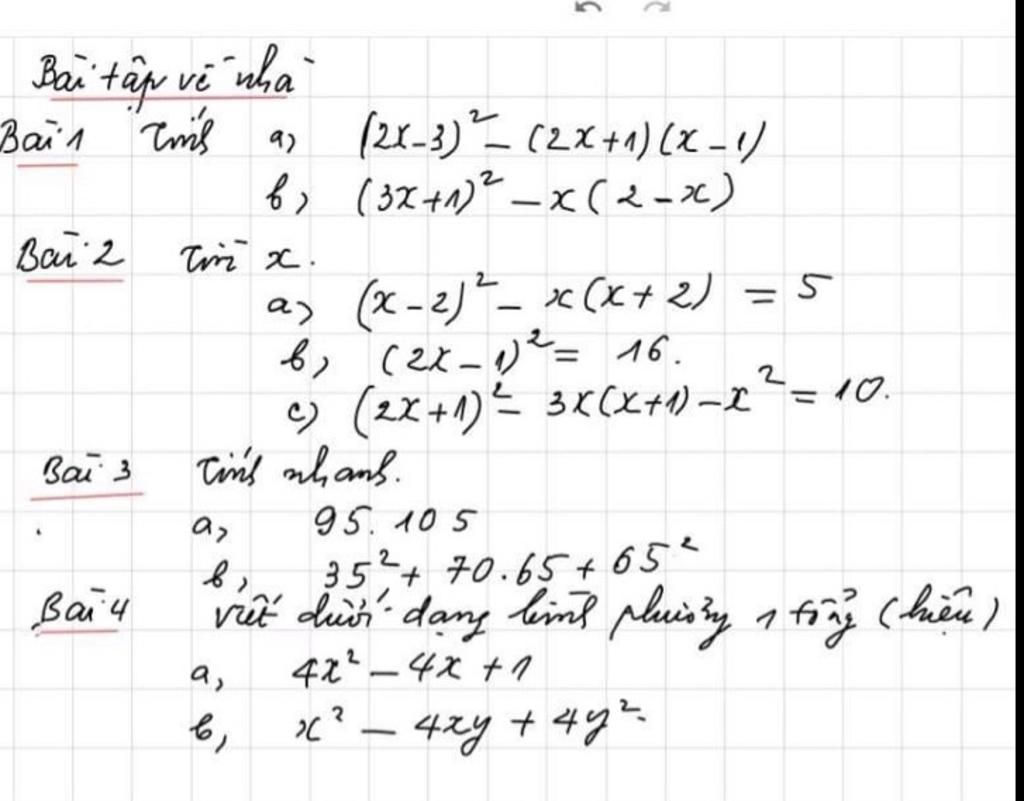 Bài tập về nhà
Bài 1 Tính a) (2x-3)² - (2x+1)(x-1)
b) (3x+1)² - x(2-x)
Bài 2 Tìm x.
a) (x-2)² - x(x+2) = 5
b) (2x-1)² = 16.
c) (2x+1)² - 3x(x+1) - x² = 10.
Bài 3 Tính nhanh.
a, 95.105
b, 35² + 70.65 + 65²
Bài 4 Viết dưới dạng bình phương 1 tổng (hiệu)
a, 4x² - 4x + 1
b, x² - 4xy + 4y².